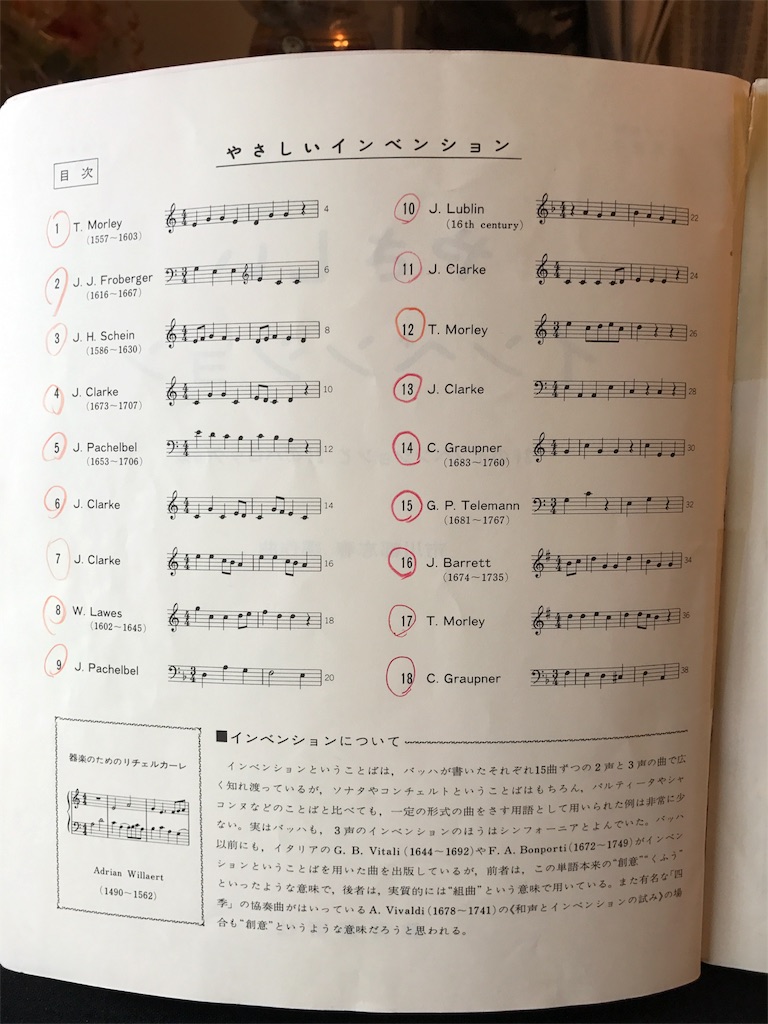 やさしいインベンション
目次
1 T. Morley 4
(1557〜1603)
2 J. J. Froberger 6
(1616〜1667)
3 J. H. Schein 8
(1586〜1630)
4 J. Clarke 10
(1673〜1707)
5 J. Pachelbel 12
(1653〜1706)
6 J. Clarke 14
7 J. Clarke 16
8 W. Lawes 18
(1602〜1645)
9 J. Pachelbel 20
10 J. Lublin 22
(16th century)
11 J. Clarke 24
12 T. Morley 26
13 J. Clarke 28
14 C. Graupner 30
(1683〜1760)
15 G. P. Telemann 32
(1681〜1767)
16 J. Barrett 34
(1674〜1735)
17 T. Morley 36
18 C. Graupner 38
器楽のためのリチェルカーレ
Adrian Willaert
(1490〜1562)
■インベンションについて
インベンションということばは，バッハが書いたそれぞれ15曲ずつの2声と3声の曲で広
く知れ渡っているが，ソナタやコンチェルトということばはもちろん，パルティータやシャ
コンヌなどのことばと比べても，一定の形式の曲をさす用語として用いられた例は非常に少
ない。実はバッハも，3声のインベンションのほうはシンフォーニアとよんでいた。バッハ
以前にも，イタリアのG. B. Vitali (1644〜1692)やF. A. Bonporti(1672〜1749)がインベン
ションということばを用いた曲を出版しているが，前者は，この単語本来の“創意”“くふう”
といったような意味で，後者は，実質的には“組曲”という意味で用いている。また有名な「四
季」の協奏曲がはいっているA. Vivaldi(1678〜1741)の《和声とインベンションの試み》の場
合も“創意”というような意味だろうと思われる。